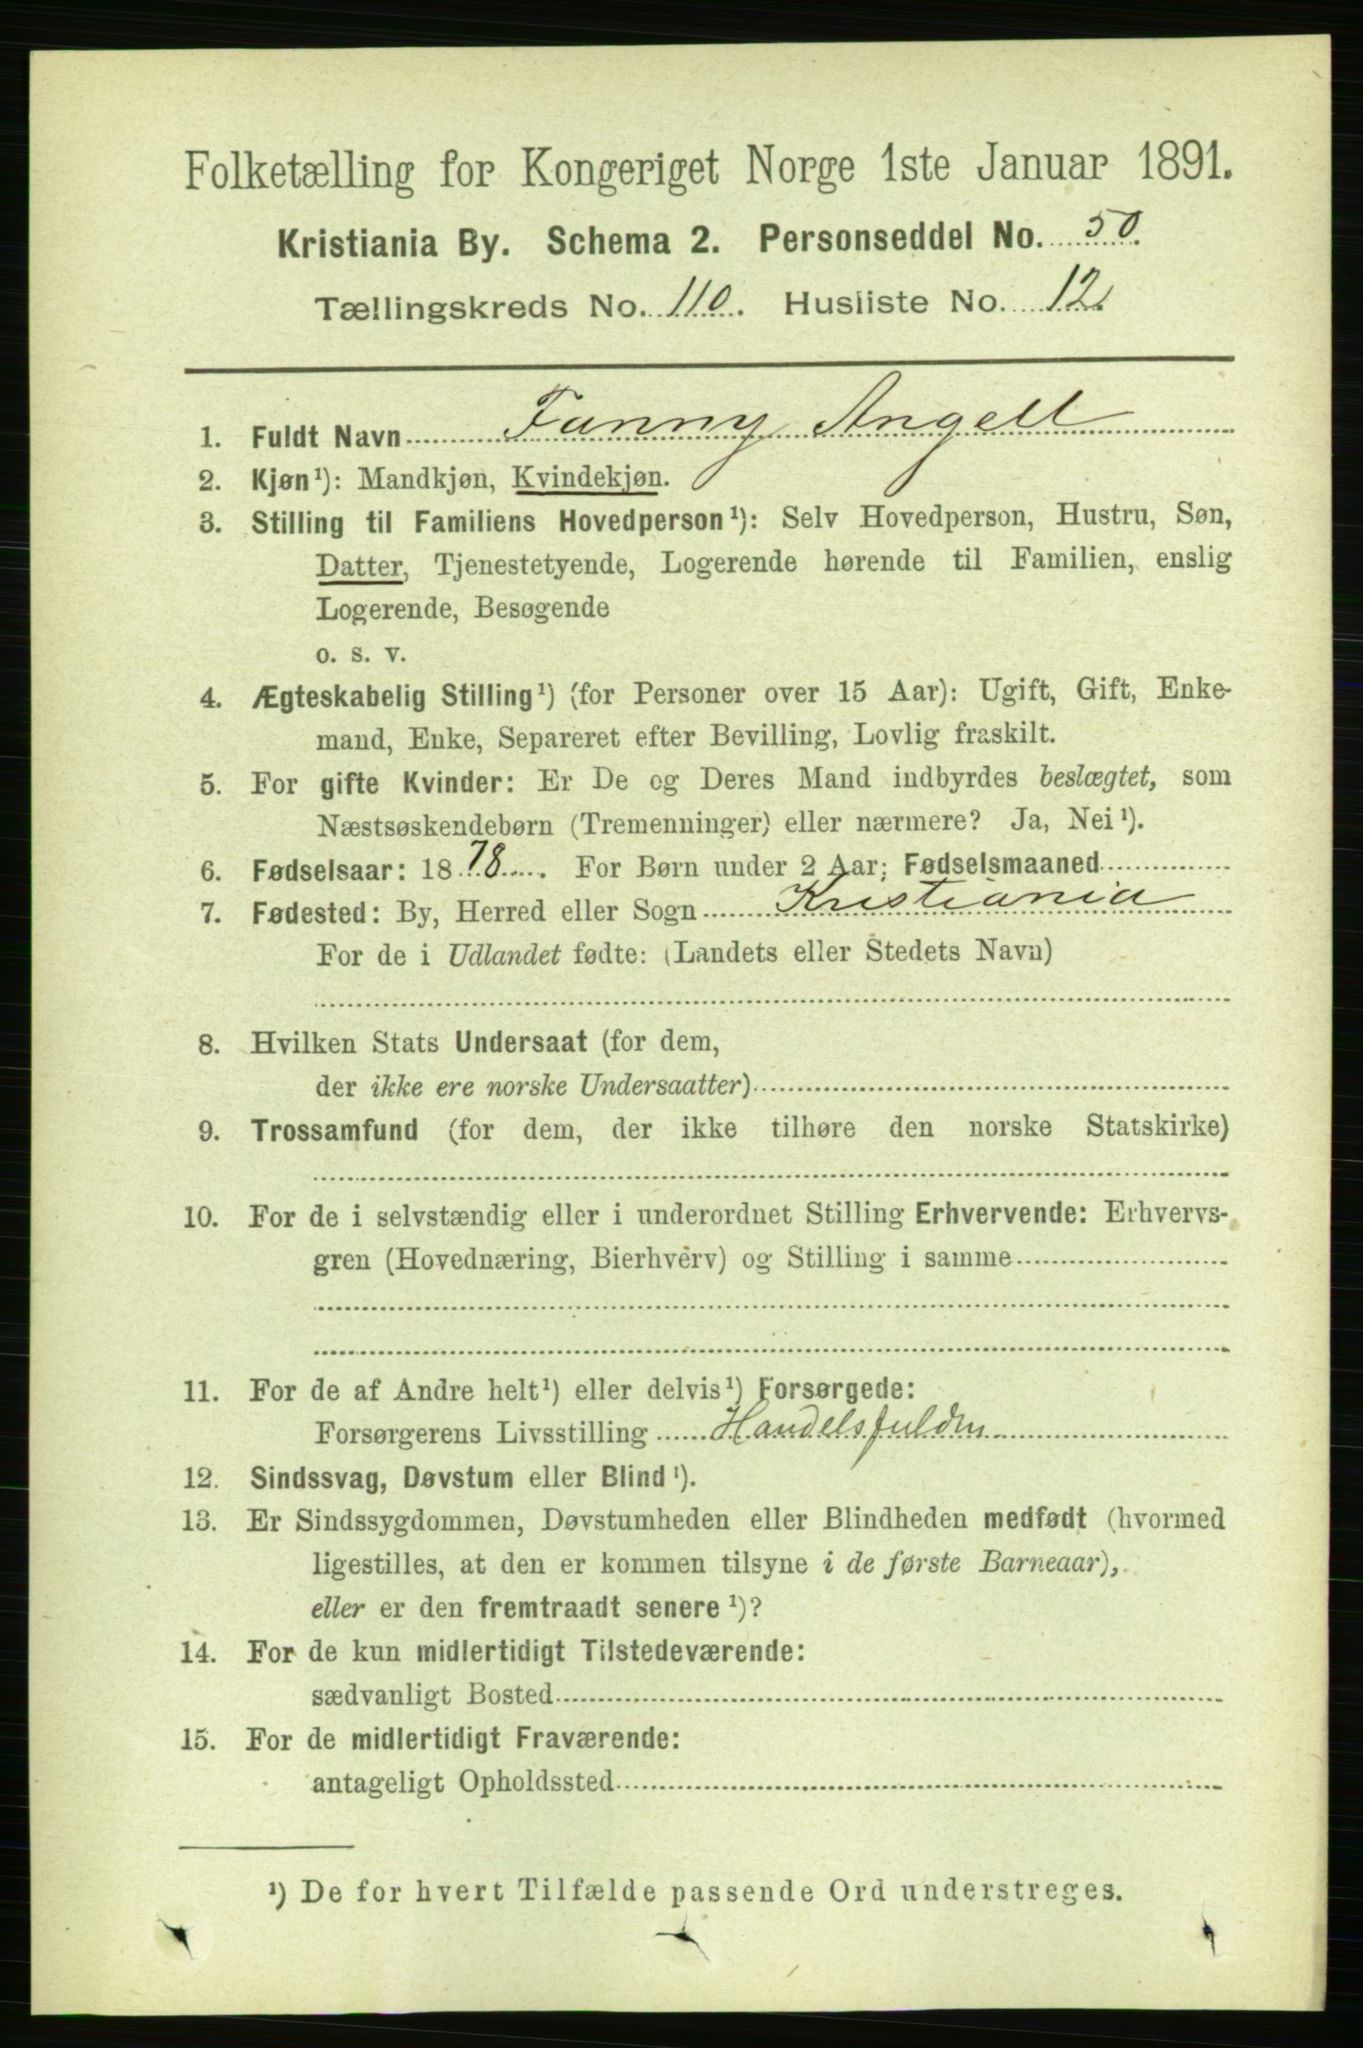 Folketælling for Kongeriget Norge 1ste Januar 1891.
Kristiania By. Schema 2. Personseddel No. 50.
Tællingskreds No. 110. Husliste No. 12.
1. Fuldt Navn Fanny Angell
2. Kjøn¹): Mandkjøn, Kvindekjøn.
3. Stilling til Familiens Hovedperson¹): Selv Hovedperson, Hustru, Søn,
Datter, Tjenestetyende, Logerende hørende til Familien, enslig
Logerende, Besøgende
o. s. v.
4. Ægteskabelig Stilling¹) (for Personer over 15 Aar): Ugift, Gift, Enke-
mand, Enke, Separeret efter Bevilling, Lovlig fraskilt.
5. For gifte Kvinder: Er De og Deres Mand indbyrdes beslægtet, som
Næstsøskendebørn (Tremenninger) eller nærmere? Ja, Nei¹).
6. Fødselsaar: 1878. For Børn under 2 Aar; Fødselsmaaned
7. Fødested: By, Herred eller Sogn Kristiania
For de i Udlandet fødte: (Landets eller Stedets Navn)
8. Hvilken Stats Undersaat (for dem,
der ikke ere norske Undersaatter)
9. Trossamfund (for dem, der ikke tilhøre den norske Statskirke)
10. For de i selvstændig eller i underordnet Stilling Erhvervende: Erhvervs-
gren (Hovednæring, Bierhverv) og Stilling i samme
11. For de af Andre helt¹) eller delvis¹) Forsørgede:
Forsørgerens Livsstilling
12. Sindssvag, Døvstum eller Blind¹).
13. Er Sindssygdommen, Døvstumheden eller Blindheden medfødt (hvormed
ligestilles, at den er kommen tilsyne i de første Barneaar),
eller er den fremtraadt senere¹)?
14. For de kun midlertidigt Tilstedeværende:
sædvanligt Bosted
15. For de midlertidigt Fraværende:
antageligt Opholdssted
¹) De for hvert Tilfælde passende Ord understreges.